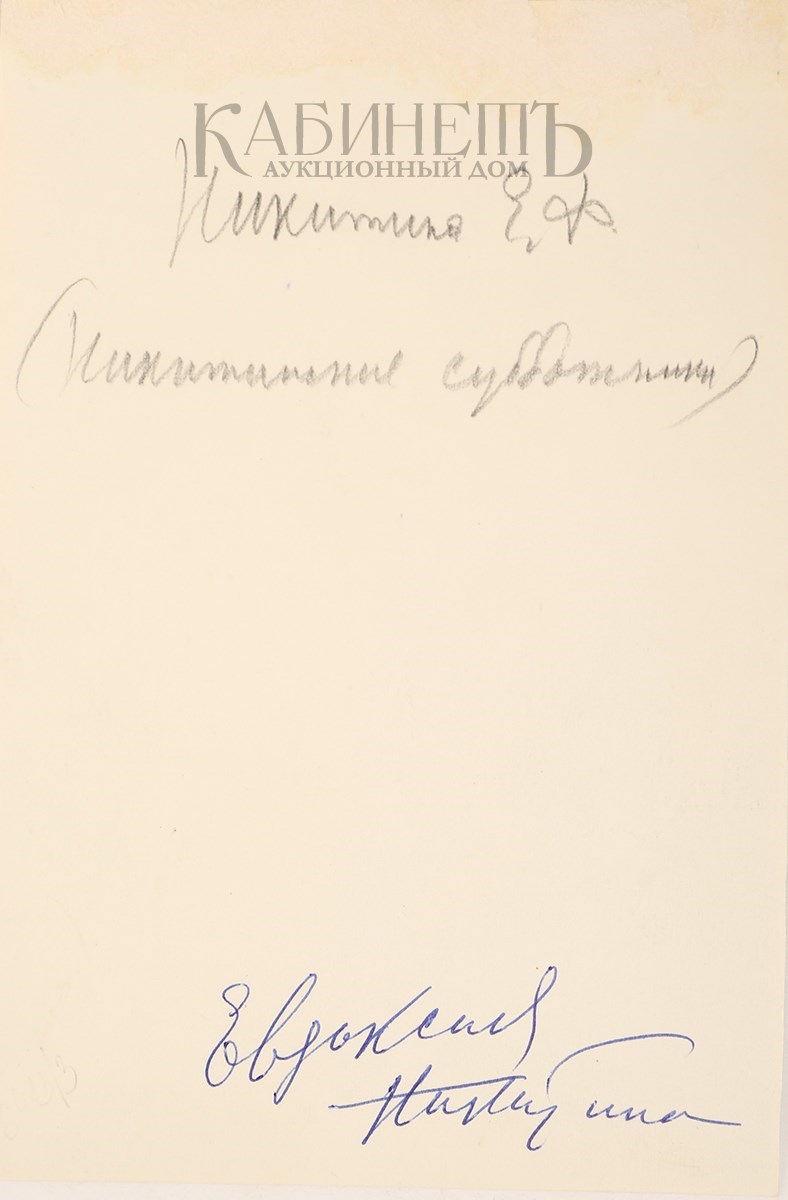 КАБИНЕТЪ
АУКЦИОННЫЙ ДОМ
Никитина Е.Ф.
(Никитинские субботники)
Евдоксия
Никитина